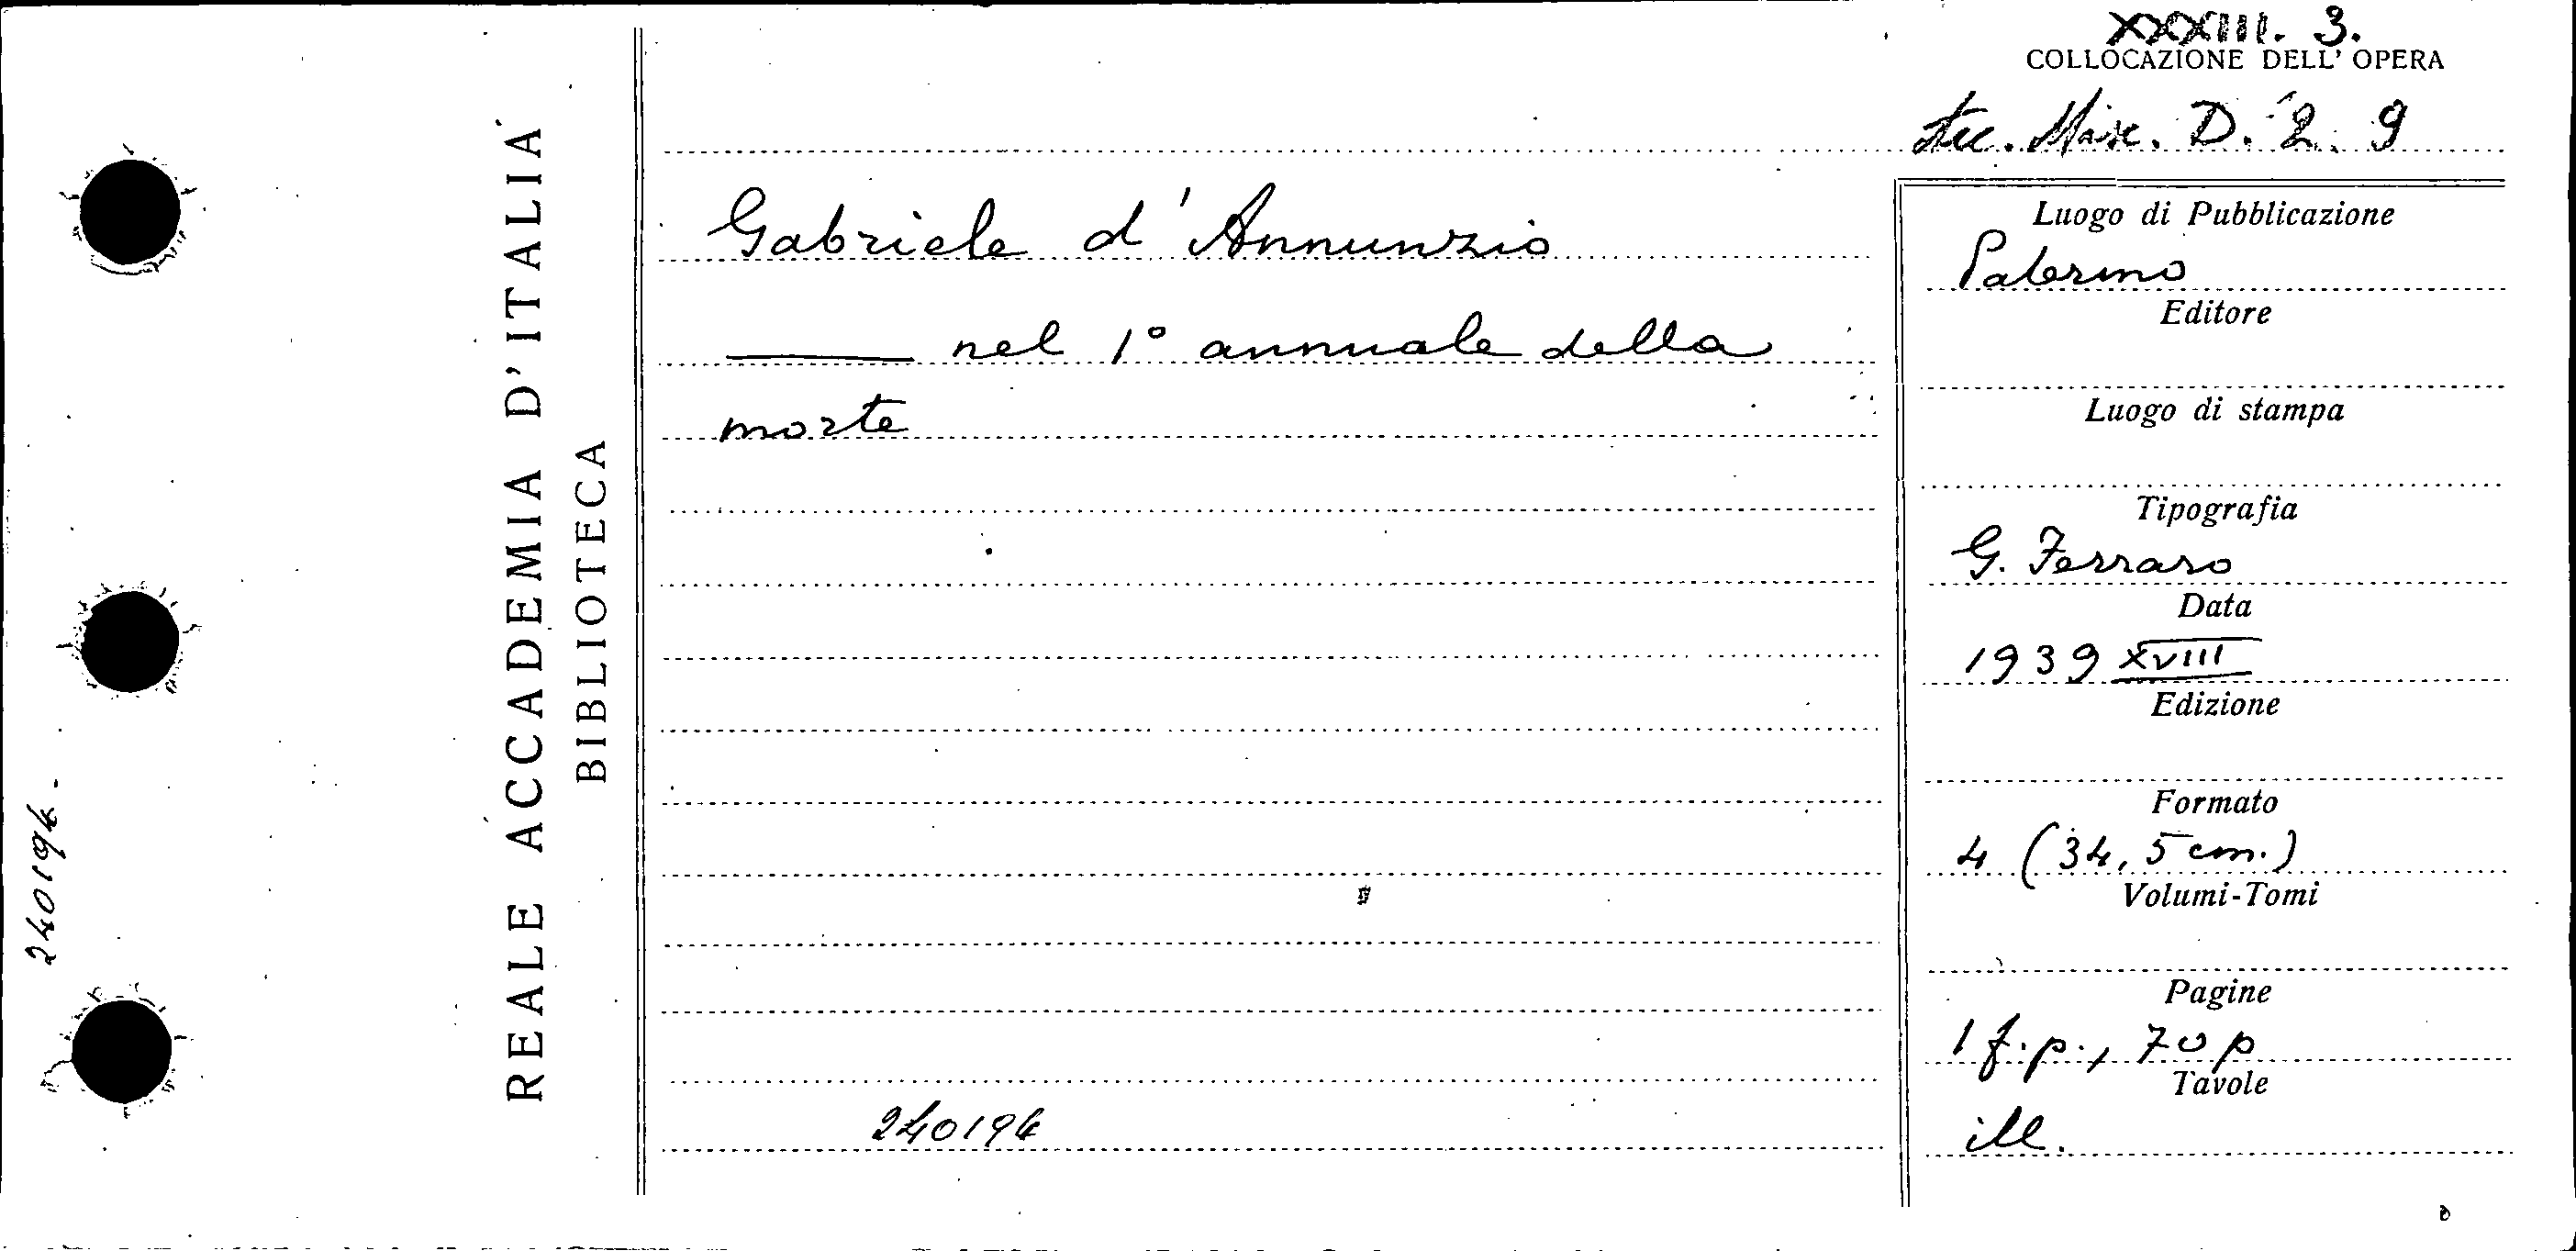 XXXIII. 3.
COLLOCAZIONE DELL' OPERA
Acc. Misc. D. 2. 9
REALE ACCADEMIA D'ITALIA
BIBLIOTECA
240194.
Gabriele d'Annunzio
——— nel 1° annuale della
morte
240194
Luogo di Pubblicazione
Palermo
Editore
Luogo di stampa
Tipografia
G. Ferraro
Data
1939 XVIII
Edizione
Formato
4 (34,5 cm.)
Volumi-Tomi
Pagine
1 f.p., 70 p
Tavole
ill.